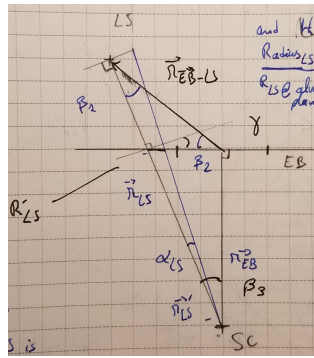 LS
and
Radius LS
R LS @
r EB-LS
β1
γ
β2
EB
R'LS
r LS
αLS
r EB
β3
r LS'
SC
is